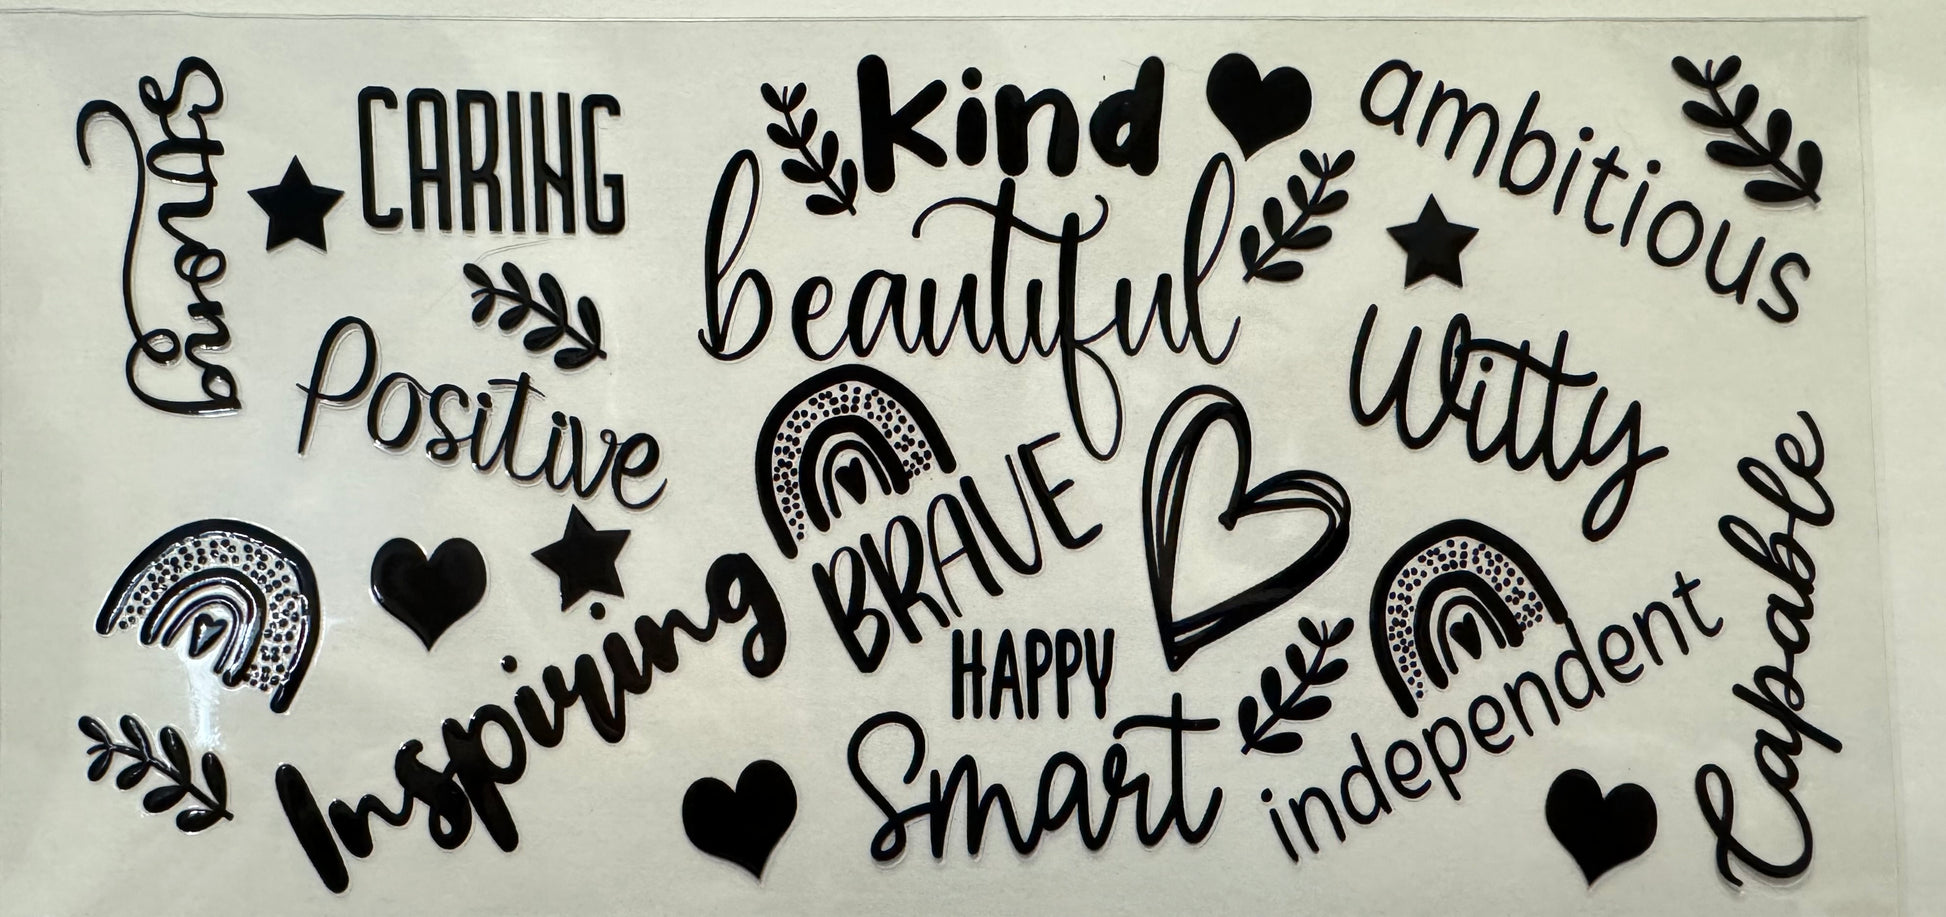 Strong
CARING
kind
ambitious
beautiful
Positive
Witty
BRAVE
Inspiring
HAPPY
Smart
independent
Capable